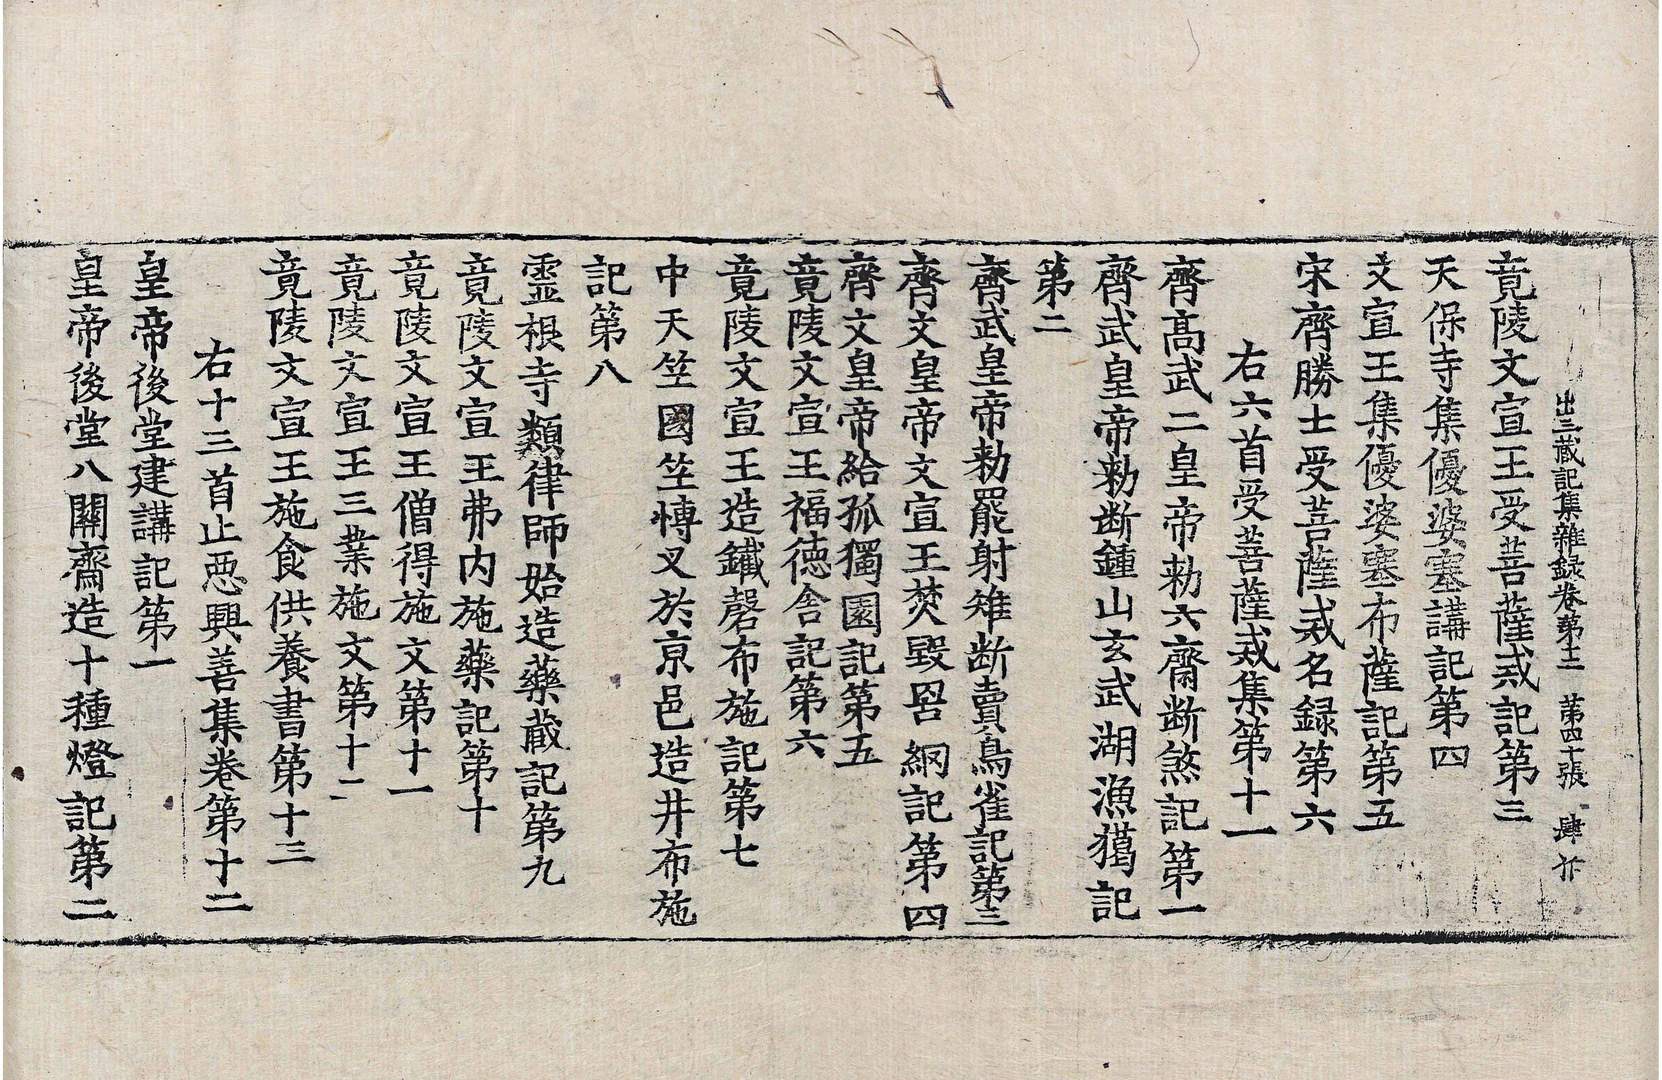 出三藏記集雜録卷第十二 第四十張 肆 㐂
竟陵文宣王受菩薩戒記第三
天保寺集優婆塞講記第四
文宣王集優婆塞布薩記第五
宋齊勝士受菩薩戒名録第六
右六首受菩薩戒集第十一
齊高武二皇帝勑六齋断煞記第一
齊武皇帝勑断鍾山玄武湖漁獦記
第二
齊武皇帝勑罷射雉断賣鳥雀記第三
齊文皇帝文宣王焚毀罟網記第四
齊文皇帝給孤獨園記第五
竟陵文宣王福德舍記第六
竟陵文宣王造鐵磬布施記第七
中天竺國竺博叉於京邑造井布施
記第八
靈根寺類律師始造藥蔵記第九
竟陵文宣王弗内施藥記第十
竟陵文宣王僧得施文第十一
竟陵文宣王三業施文第十二
竟陵文宣王施食供養書第十三
右十三首止惡興善集卷第十二
皇帝後堂建講記第一
皇帝後堂八關齋造十種燈記第二